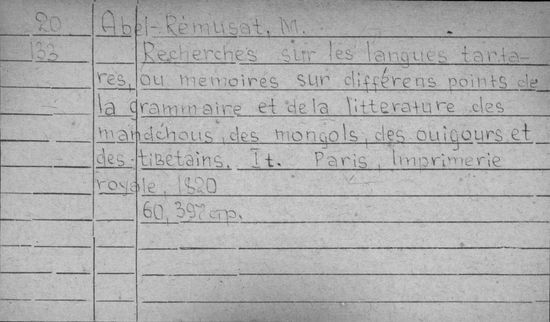 20 Abel-Rémusat, M.
133 Recherches sur les langues tarta-
res, ou memoires sur différens points de
la grammaire et de la litterature des
mandchous, des mongols, des ouigours et
des tibetains. I t. Paris, Imprimerie
royale, 1820
60, 397 стр.